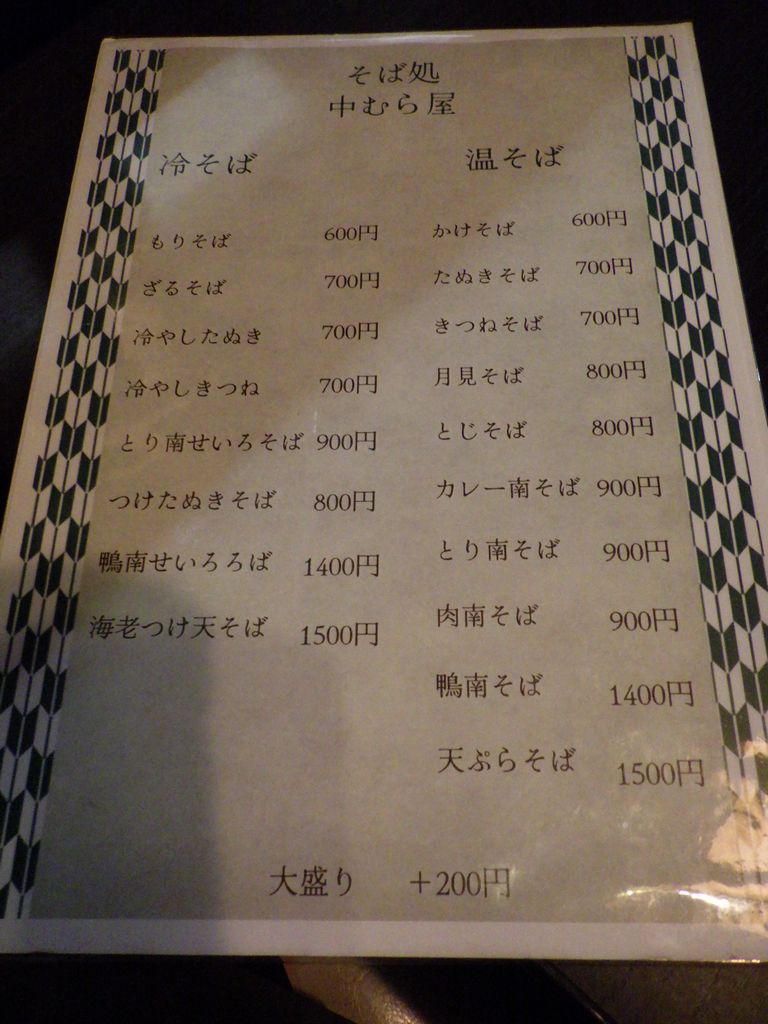 そば処
中むら屋
冷そば
もりそば 600円
ざるそば 700円
冷やしたぬき 700円
冷やしきつね 700円
とり南せいろそば 900円
つけたぬきそば 800円
鴨南せいろろば 1400円
海老つけ天そば 1500円
温そば
かけそば 600円
たぬきそば 700円
きつねそば 700円
月見そば 800円
とじそば 800円
カレー南そば 900円
とり南そば 900円
肉南そば 900円
鴨南そば 1400円
天ぷらそば 1500円
大盛り +200円